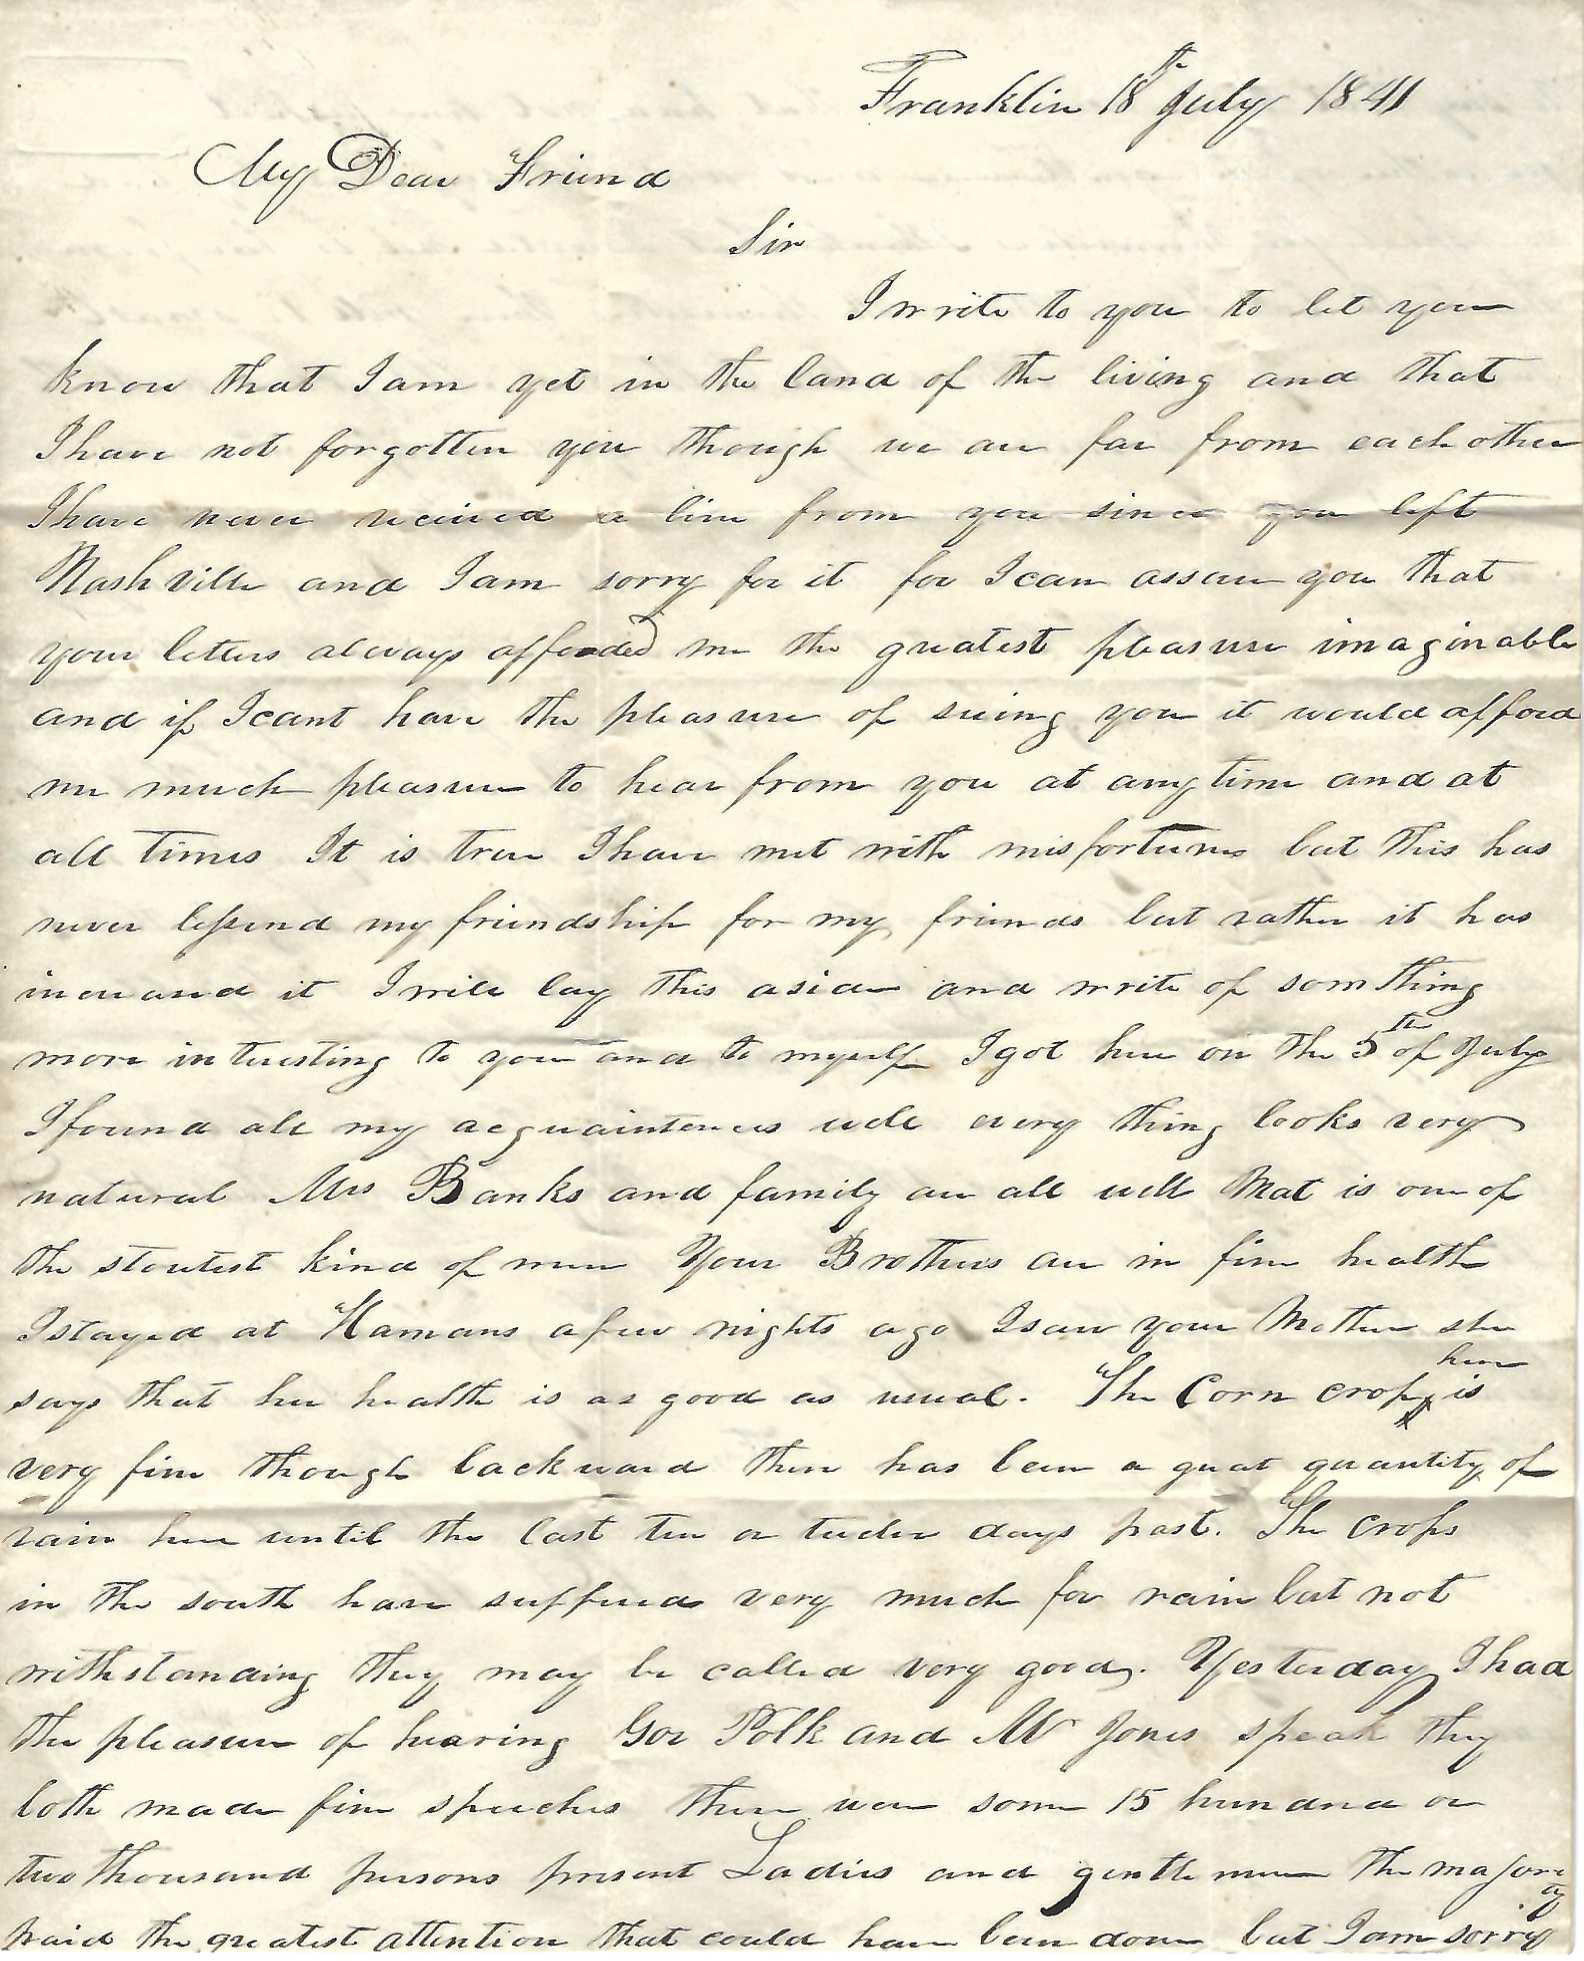 Franklin 18th July 1841
My Dear Friend
Sir
I write to you to let you
know that I am yet in the land of the living and that
I have not forgotten you though we are far from each other
I have never received a line from you since you left
Nashville and I am sorry for it for I can assure you that
your letters always afforded me the greatest pleasure imaginable
and if I cant have the pleasure of seeing you it would afford
me much pleasure to hear from you at any time and at
all times It is true I have met with misfortunes but this has
never lessend my friendship for my friends but rather it has
increased it I will lay this aside and write of som thing
more interesting to you and to myself I got here on the 5th of July
I found all my acquaintences well every thing looks very
natural Mrs Banks and family are all well Mat is one of
the stoutest kind of men Your Brothers are in fine health
I stayed at Hamans a few nights ago I saw your Mother she
says that her health is as good as usual. The Corn crop here is
very fine though backward there has been a great quantity of
rain here until the last ten or twelve days past. The crops
in the south have suffered very much for rain but not
withstanding they may be called very good. Yesterday I had
the pleasure of hearing Gov Polk and Mr Jones speak they
both made fine speeches there were some 15 hundred or
two thousand persons present Ladies and gentlemen the majority
paid the greatest attention that could have been done but I am sorry